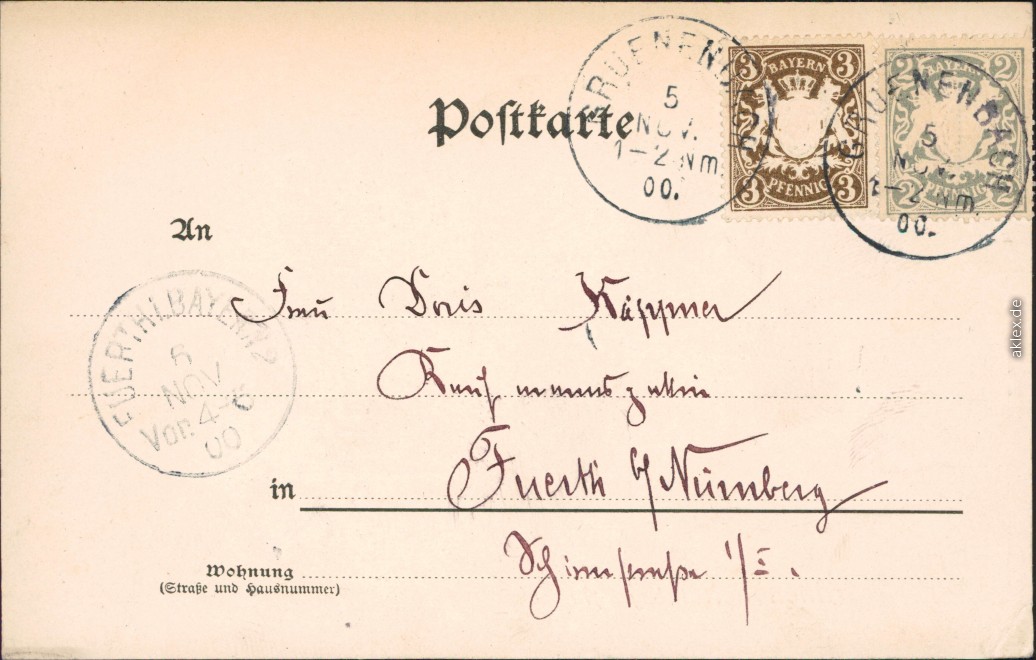 GRUENENBACH
5
NOV.
1-2 Nm.
00.
3 BAYERN 3
3 PFENNIG 3
GRUENENBACH
5
NOV.
1-2 Nm.
00.
2 BAYERN 2
2 PFENNIG 2
Poſtkarte
An
Frau Doris Käppner
Kaufmannsgattin
in Fuerth b/Nürnberg
FUERTH I.BAYERN 2
6
NOV
Vor. 4-6
00
Wohnung
(Straße und Hausnummer)
1/I.
aklex.de